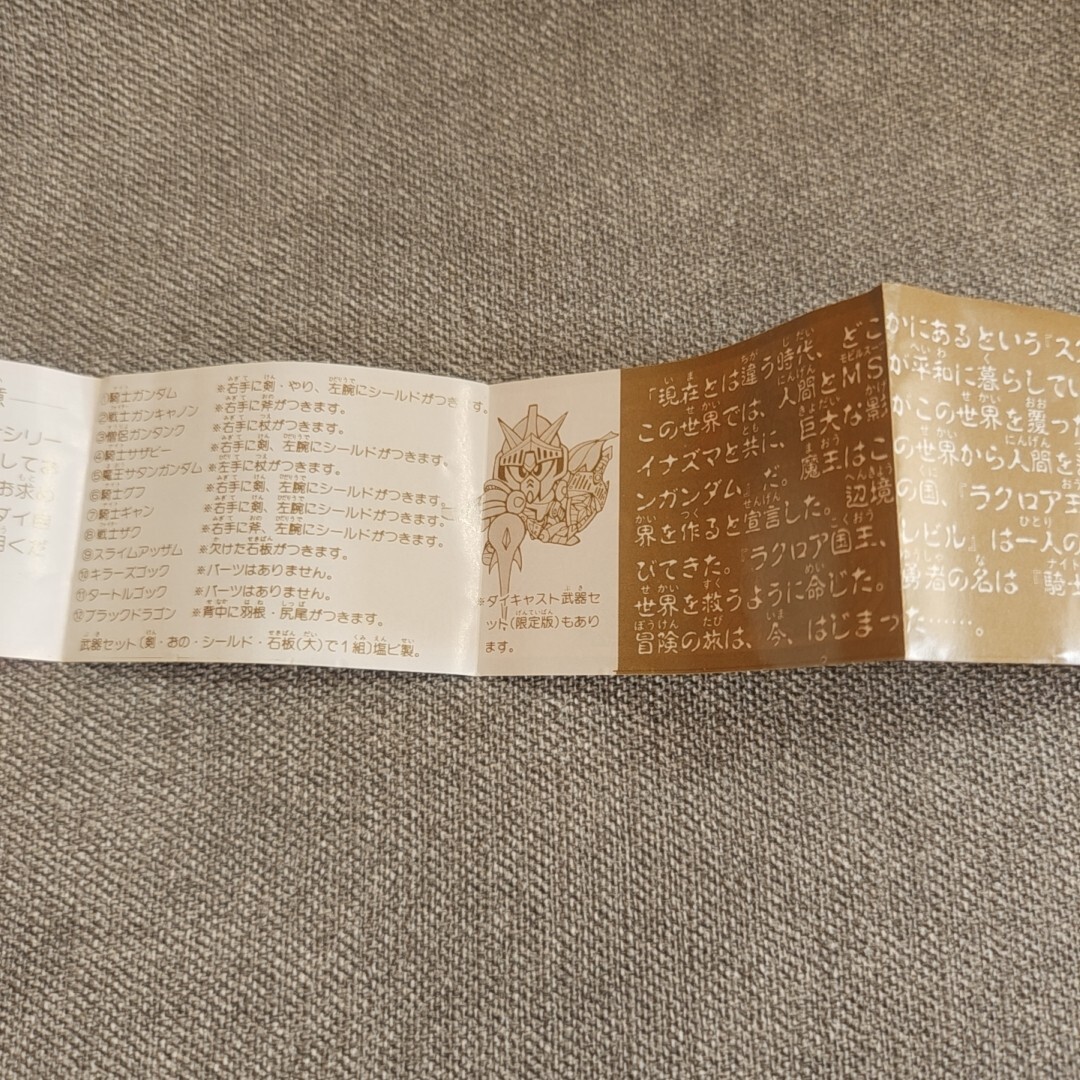 意
シリー
してお
お求め
ダイ
用くだ
①騎士ガンダム ※右手に剣・やり、左腕にシールドがつきます。
②戦士ガンキャノン ※右手に斧がつきます。
③僧侶ガンタンク ※右手に杖がつきます。
④騎士サザビー ※右手に剣、左腕にシールドがつきます。
⑤魔王サタンガンダム ※左手に杖がつきます。
⑥騎士グフ ※右手に剣、左腕にシールドがつきます。
⑦騎士ギャン ※右手に剣、左腕にシールドがつきます。
⑧戦士ザク ※右手に斧、左腕にシールドがつきます。
⑨スライムアッザム ※欠けた石板がつきます。
⑩キラーズゴック ※パーツはありません。
⑪タートルゴック ※パーツはありません。
⑫ブラックドラゴン ※背中に羽根・尻尾がつきます。
武器セット(剣・おの・シールド・石板(大)で1組)塩ビ製。
※ダイキャスト武器セ
ット(限定版)もあり
ます。
「現在とは違う時代、どこかにあるという『ス
この世界では、人間とMSが平和に暮らしてい
イナズマと共に、巨大な影がこの世界を覆った
ンガンダム』だ。魔王はこの世界から人間を
界を作ると宣言した。辺境の国、『ラクロア王
びてきた。『ラクロア国王、レビル』は一人の
世界を救うように命じた。勇者の名は『騎士
冒険の旅は、今、はじまった………。